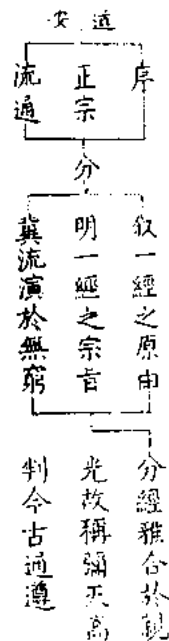 道安
序
正宗
流通
分
叙一經之原由
明一經之宗旨
冀流演於無窮
分經雅合於親
光故稱彌天高
判今古通遵